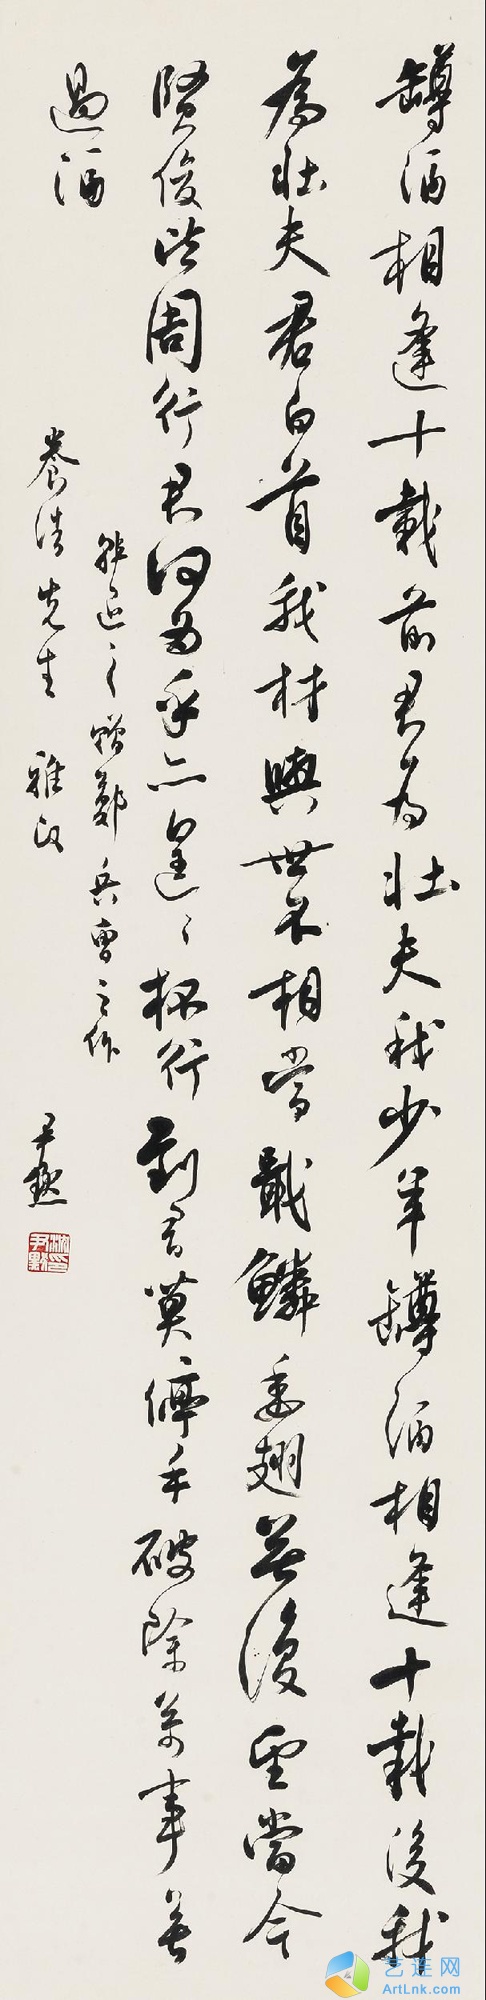 罇酒相逢十載前君為壯夫我少年罇酒相逢十載後我
為壯夫君白首我材與世不相當戢鱗委翅無復望當今
賢俊皆周行君何為乎亦遑遑杯行到君莫停手破除萬事無
過酒
韓退之贈鄭兵曹之作
養浩先生 雅政
尹默
沈尹默印
艺连网
ArtLnk.com